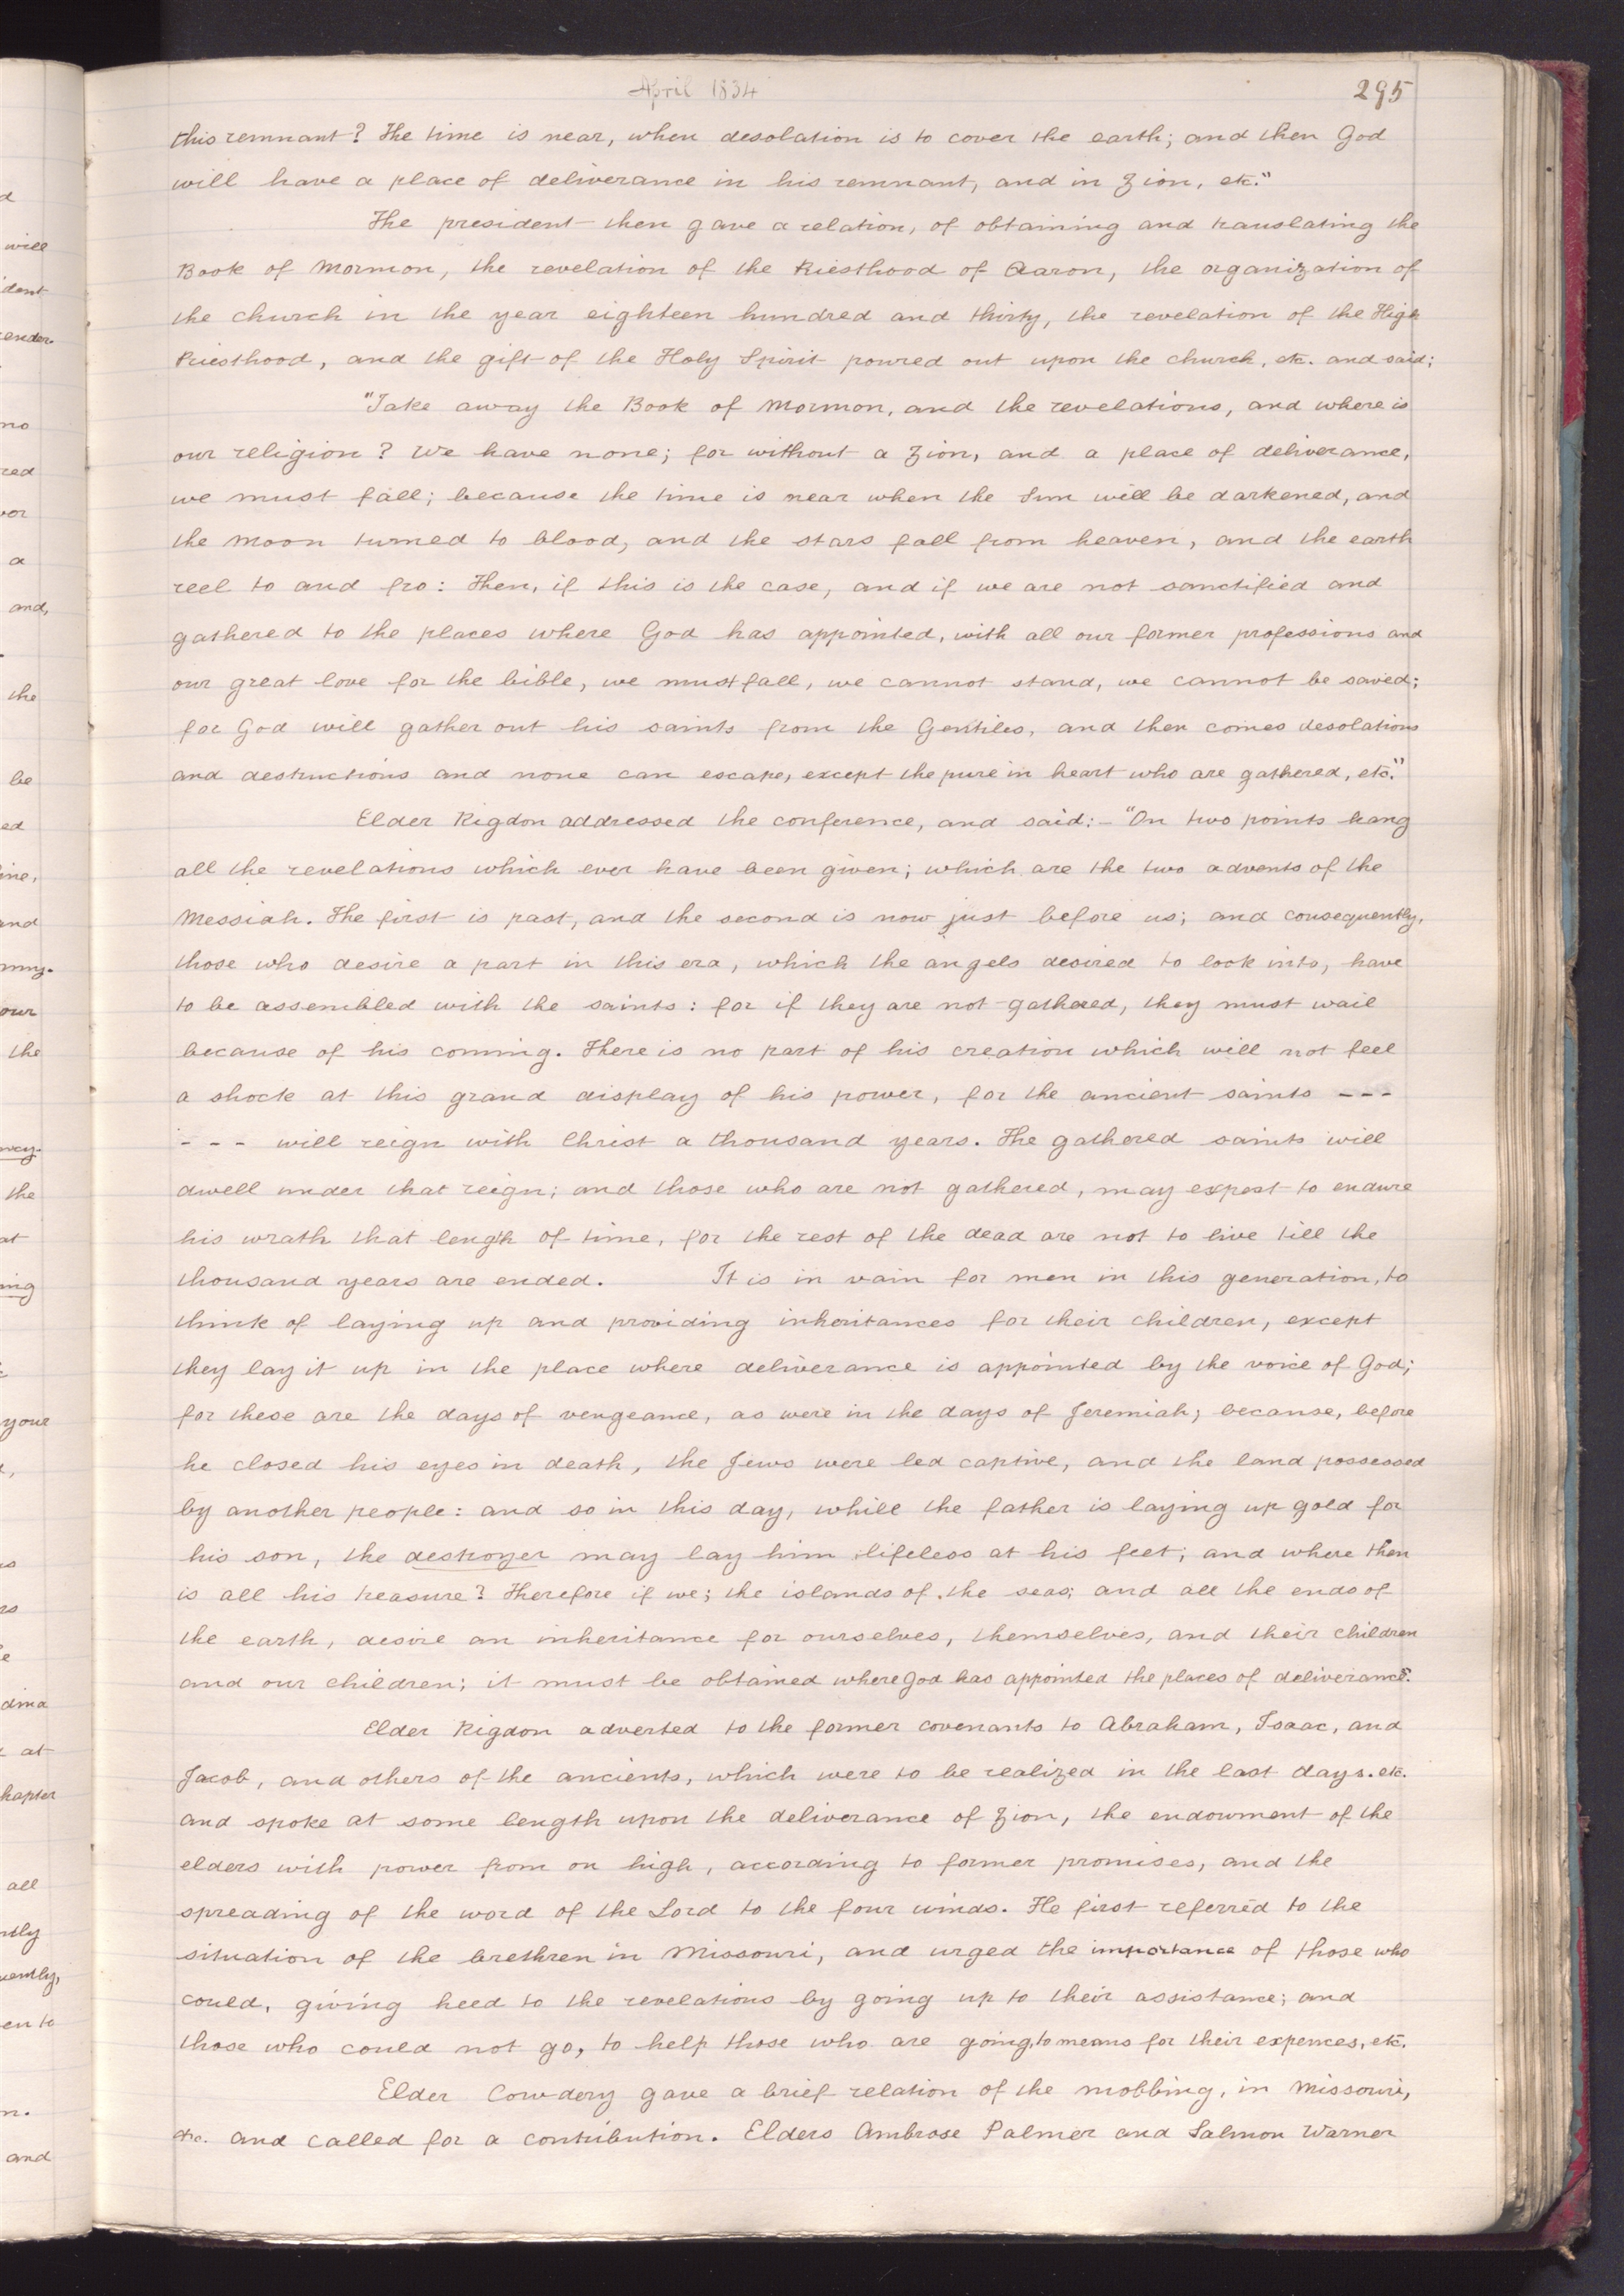 April 1834
295
this remnant? The time is near, when desolation is to cover the earth; and then God
will have a place of deliverance in his remnant, and in Zion, etc."
The president then gave a relation, of obtaining and translating the
Book of Mormon, the revelation of the Priesthood of Aaron, the organization of
the church in the year eighteen hundred and thirty, the revelation of the High
Priesthood, and the gift of the Holy Spirit poured out upon the church, etc. and said;
"Take away the Book of Mormon, and the revelations, and where is
our religion? We have none; for without a Zion, and a place of deliverance,
we must fall; because the time is near when the Sun will be darkened, and
the moon turned to blood, and the stars fall from heaven, and the earth
reel to and fro: Then, if this is the case, and if we are not sanctified and
gathered to the places where God has appointed, with all our former professions and
our great love for the bible, we must fall, we cannot stand, we cannot be saved;
for God will gather out his saints from the Gentiles, and then comes desolations
and destructions and none can escape, except the pure in heart who are gathered, etc."
Elder Rigdon addressed the conference, and said:- "On two points hang
all the revelations which ever have been given; which are the two advents of the
Messiah. The first is past, and the second is now just before us; and consequently,
those who desire a part in this era, which the angels desired to look into, have
to be assembled with the saints: for if they are not gathered, they must wail
because of his coming. There is no part of his creation which will not feel
a shock at this grand display of his power, for the ancient saints ---
--- will reign with Christ a thousand years. The gathered saints will
dwell under that reign; and those who are not gathered, may expect to endure
his wrath that length of time, for the rest of the dead are not to live till the
thousand years are ended. It is in vain for men in this generation, to
think of laying up and providing inheritances for their children, except
they lay it up in the place where deliverance is appointed by the voice of God;
for these are the days of vengeance, as were in the days of Jeremiah; because, before
he closed his eyes in death, the Jews were led captive, and the land possessed
by another people: and so in this day, while the father is laying up gold for
his son, the destroyer may lay him lifeless at his feet; and where then
is all his treasure? Therefore if we; the islands of the seas; and all the ends of
the earth, desire an inheritance for ourselves, themselves, and their children
and our children; it must be obtained where God has appointed the places of deliverance."
Elder Rigdon adverted to the former covenants to Abraham, Isaac, and
Jacob, and others of the ancients, which were to be realized in the last days. etc.
and spoke at some length upon the deliverance of Zion, the endowment of the
elders with power from on high, according to former promises, and the
spreading of the word of the Lord to the four winds. He first referred to the
situation of the brethren in Missouri, and urged the importance of those who
could, giving heed to the revelations by going up to their assistance; and
those who could not go, to help those who are going, to means for their expences, etc.
Elder Cowdery gave a brief relation of the mobbing, in Missouri,
etc. and called for a contribution. Elders Ambrose Palmer and Salmon Warner